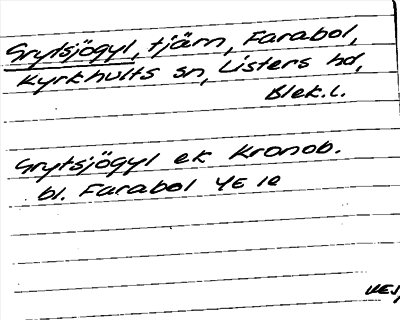 Grytsjögyl, tjärn, Farabol,
Kyrkhults sn, Listers hd,
Blek.l.
Grytsjögyl ek Kronob.
bl. Farabol 4E 1e